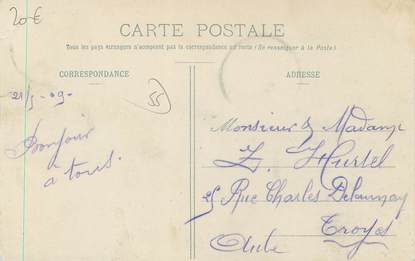 20€
CARTE POSTALE
Tous les pays étrangers n'acceptent pas la correspondance au recto (Se renseigner à la Poste)
CORRESPONDANCE
ADRESSE
21/5 - 09 -
55
Bonjour
à tous.
Monsieur & Madame
Z. Hursel
25 Rue Charles Delaunay
Troyes
Aube